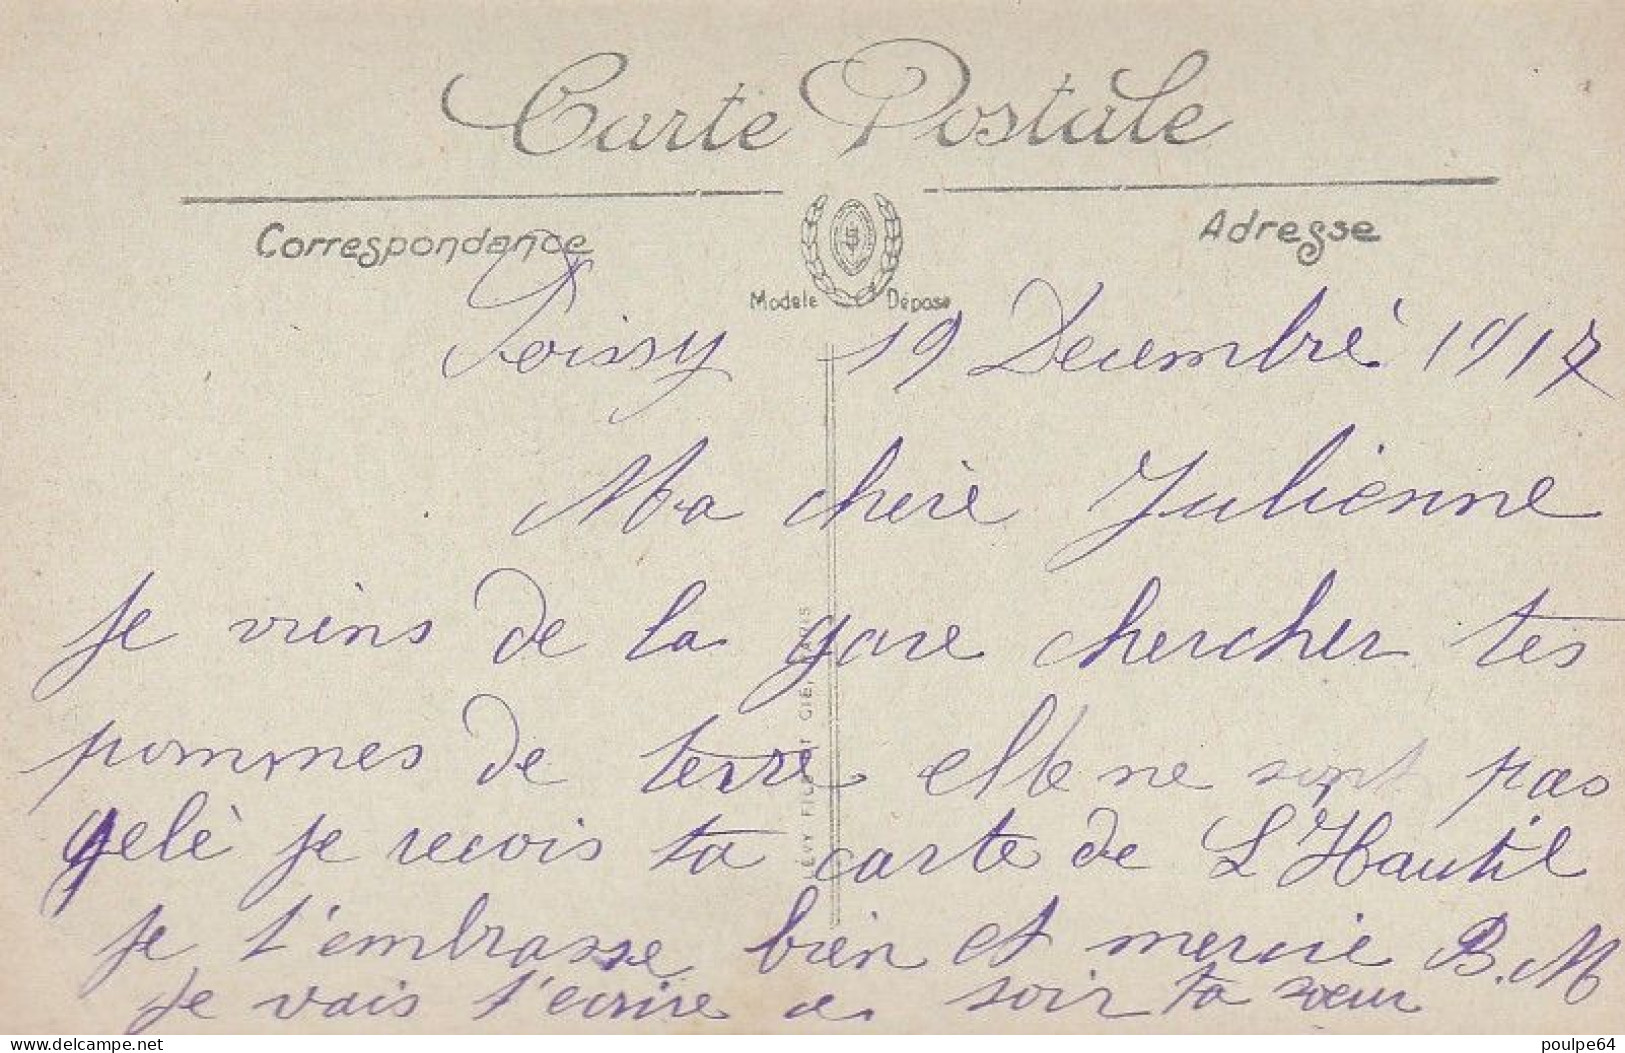 Carte Postale
Correspondance
Adresse
Modele Déposé
Poissy 19 Decembre 1917
Ma cherè Julienne
je viens de la gare chercher tes
pommes de terre elle ne sont pas
gelè je recois ta carte de L'Hautil
je t'embrasse bien et mercie B.M
Je vais t'ecrire ce soir ta sœur
LÉVY FILS ET CIE, PARIS
www.delcampe.net
poulpe64